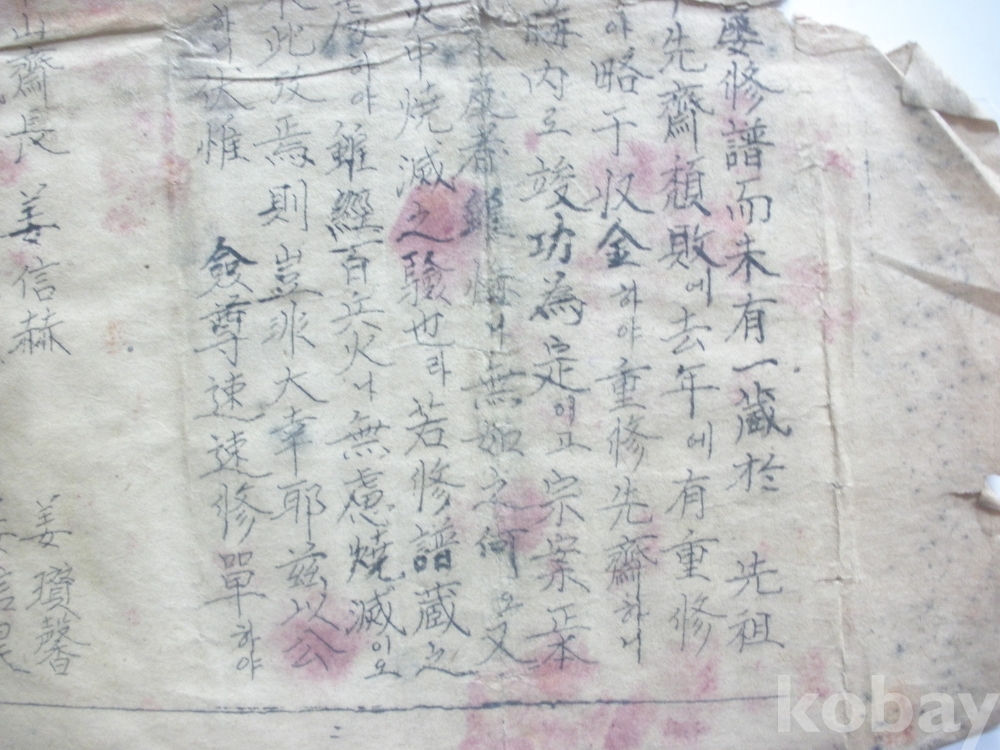 屢修譜而未有一蔵於 先祖
先齋頹敗에去年에有重修
야略干収金하야重修先齋하니
内로竣功為定이고宗案正本
無如之何오又
火中焼滅之驗也라若修譜蔵之
하야雖經百兵火나無慮燒滅이오
此攷焉則豈非大幸耶茲以公
하니伏惟 僉尊速速修單하야
山齋長 姜信赫 姜瓚馨
kobay